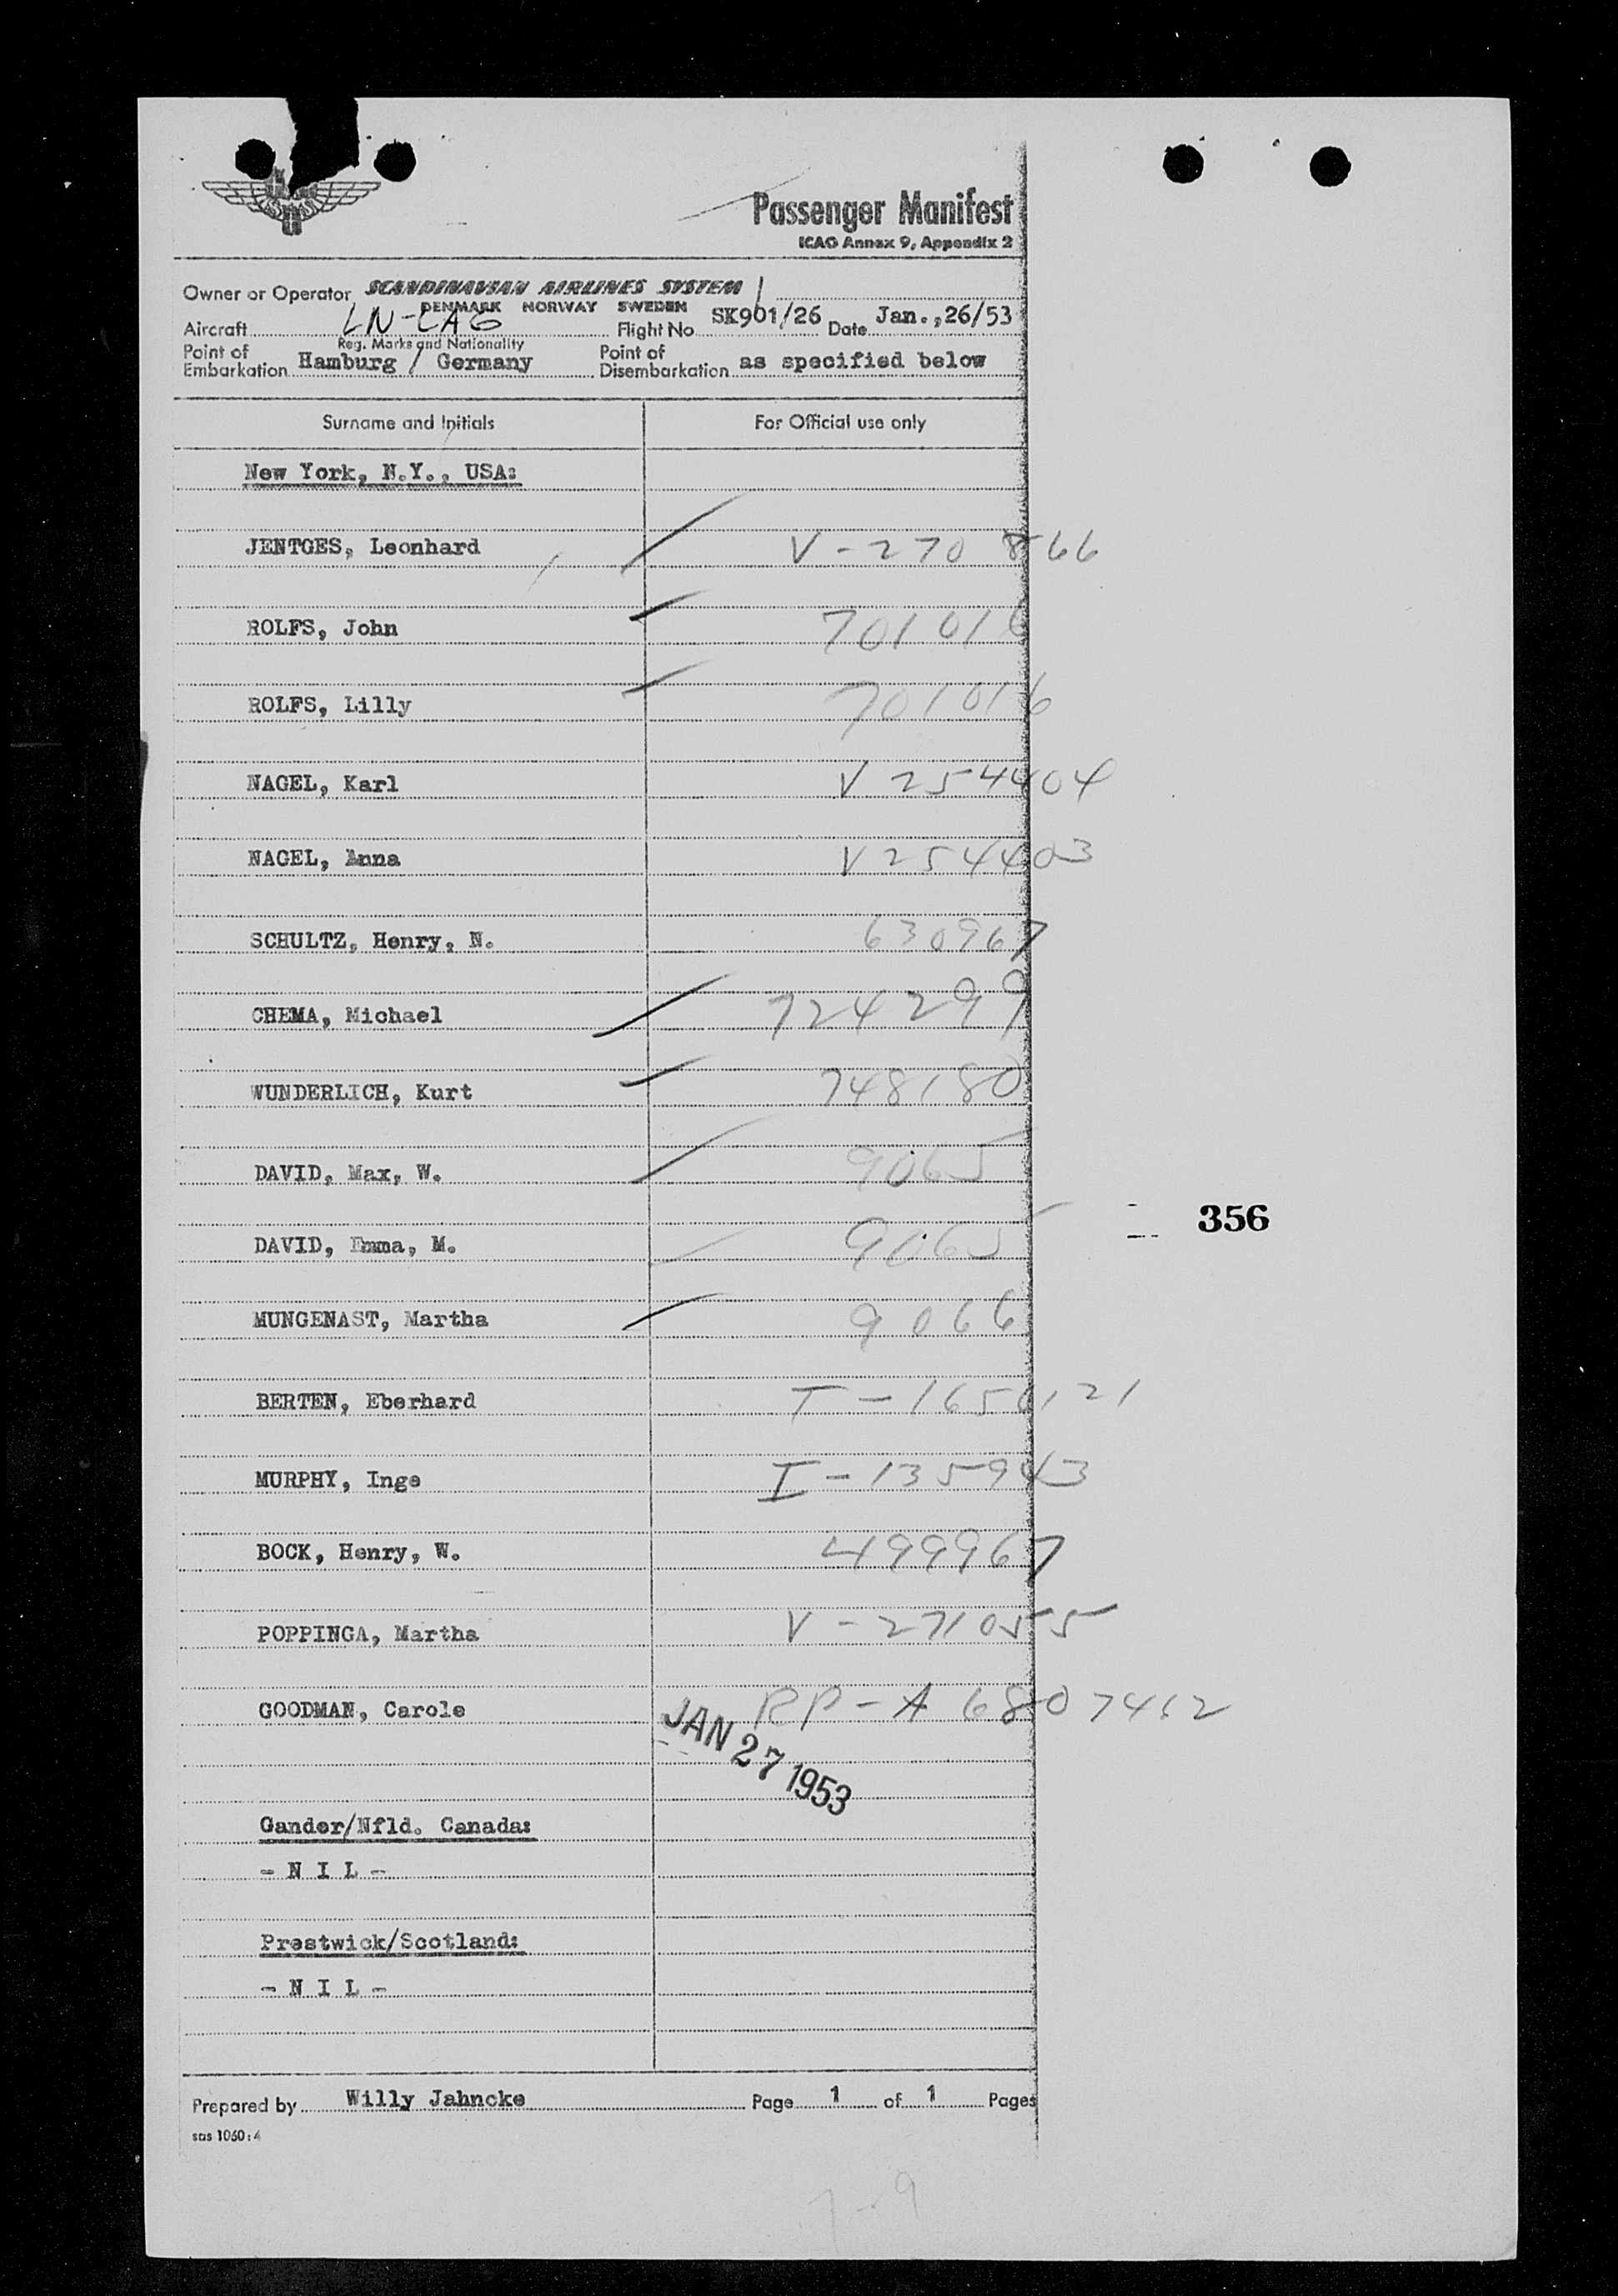 Passenger Manifest
ICAO Annex 9, Appendix 2
Owner or Operator SCANDINAVIAN AIRLINES SYSTEM
DENMARK NORWAY SWEDEN
Aircraft LN-LAG Flight No. SK901/26 Date Jan.,26/53
Reg. Marks and Nationality
Point of Embarkation Hamburg / Germany Point of Disembarkation as specified below
Surname and Initials For Official use only
New York, N.Y., USA:
JENTGES, Leonhard V-270 866
ROLFS, John 701016
ROLFS, Lilly 701016
NAGEL, Karl V 254404
NAGEL, Anna V 254403
SCHULTZ, Henry, N. 630967
CHEMA, Michael 724299
WUNDERLICH, Kurt 748180
DAVID, Max, W. 9065
DAVID, Emma, M. 9065
MUNGENAST, Martha 9066
BERTEN, Eberhard
MURPHY, Inge I-135943
BOCK, Henry, W. 499967
POPPINGA, Martha V-271055
GOODMAN, Carole RP-A 6807412
JAN 27 1953
Gander/Nfld. Canada:
- N I L -
Prestwick/Scotland:
- N I L -
356
Prepared by Willy Jahncke Page 1 of 1 Pages
sas 1060:4